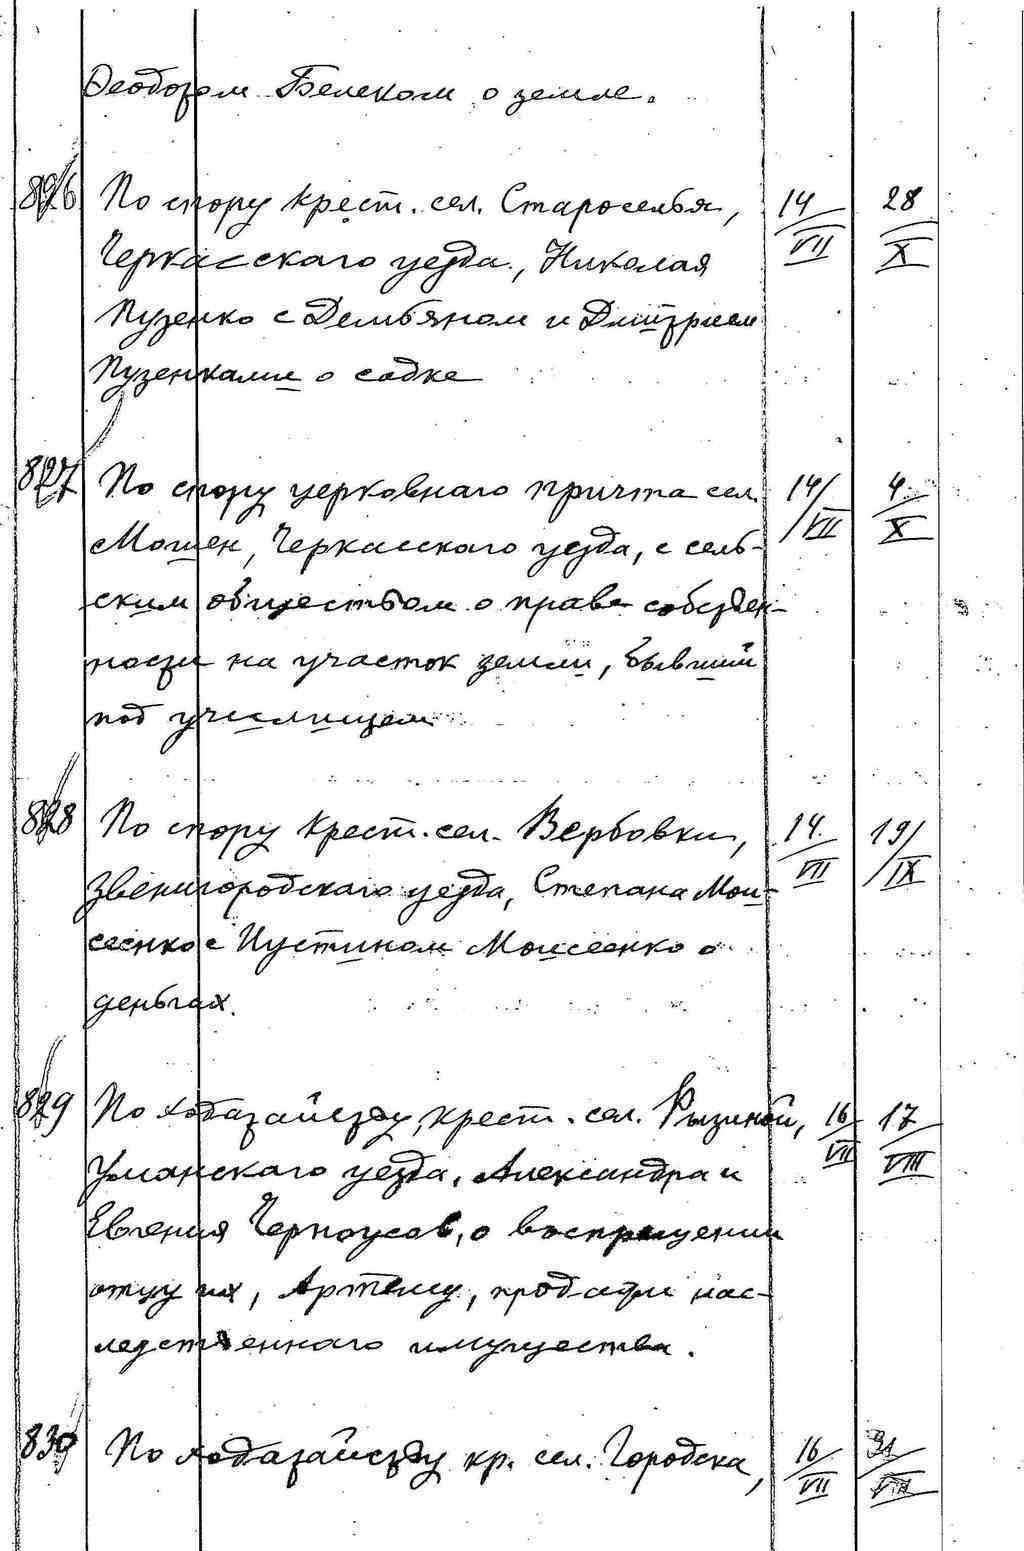 Феодором Белеком о земле.
826 По спору крест. сел. Староселья, 14/VII 28/X
Черкасскаго уезда, Николая
Пузенко с Демьяном и Дмитрием
Пузенками о садке
827 По спору церковнаго причта сел. 14/VII 4/X
Мошен, Черкасскаго уезда, с сель-
ским обществом о праве собствен-
ности на участок земли, бывший
под училищем
828 По спору крест. сел. Вербовки, 14/VII 19/IX
Звенигородскаго уезда, Степана Мои-
сеенко с Иустином Моисеенко о
деньгах.
829 По ходатайству крест. сел. Рызиной, 16/VII 17/VIII
Уманскаго уезда, Александра и
Евгения Черноусов, о воспрещении
отцу их, Артему, продажи нас-
ледственнаго имущества.
830 По ходатайству кр. сел. Городска, 16/VII 31/VIII